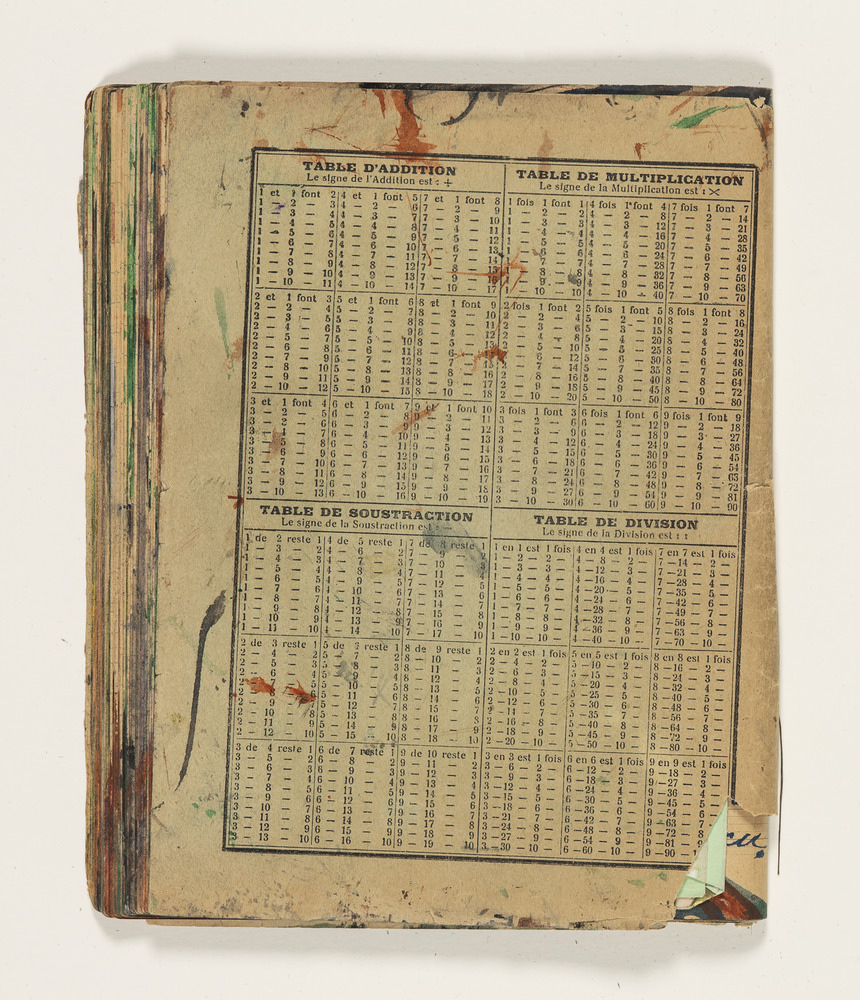 TABLE D'ADDITION
Le signe de l'Addition est : +
1 et 1 font 2 4 et 1 font 5 7 et 1 font 8
1 — 2 — 3 4 — 2 — 6 7 — 2 — 9
1 — 3 — 4 4 — 3 — 7 7 — 3 — 10
1 — 4 — 5 4 — 4 — 8 7 — 4 — 11
1 — 5 — 6 4 — 5 — 9 7 — 5 — 12
1 — 6 — 7 4 — 6 — 10 7 — 6 — 13
1 — 7 — 8 4 — 7 — 11 7 — 7 — 14
1 — 8 — 9 4 — 8 — 12 7 — 8 — 15
1 — 9 — 10 4 — 9 — 13 7 — 9 — 16
1 — 10 — 11 4 — 10 — 14 7 — 10 — 17
2 et 1 font 3 5 et 1 font 6 8 et 1 font 9
2 — 2 — 4 5 — 2 — 7 8 — 2 — 10
2 — 3 — 5 5 — 3 — 8 8 — 3 — 11
2 — 4 — 6 5 — 4 — 9 8 — 4 — 12
2 — 5 — 7 5 — 5 — 10 8 — 5 — 13
2 — 6 — 8 5 — 6 — 11 8 — 6 — 14
2 — 7 — 9 5 — 7 — 12 8 — 7 — 15
2 — 8 — 10 5 — 8 — 13 8 — 8 — 16
2 — 9 — 11 5 — 9 — 14 8 — 9 — 17
2 — 10 — 12 5 — 10 — 15 8 — 10 — 18
3 et 1 font 4 6 et 1 font 7 9 et 1 font 10
3 — 2 — 5 6 — 2 — 8 9 — 2 — 11
3 — 3 — 6 6 — 3 — 9 9 — 3 — 12
3 — 4 — 7 6 — 4 — 10 9 — 4 — 13
3 — 5 — 8 6 — 5 — 11 9 — 5 — 14
3 — 6 — 9 6 — 6 — 12 9 — 6 — 15
3 — 7 — 10 6 — 7 — 13 9 — 7 — 16
3 — 8 — 11 6 — 8 — 14 9 — 8 — 17
3 — 9 — 12 6 — 9 — 15 9 — 9 — 18
3 — 10 — 13 6 — 10 — 16 9 — 10 — 19
TABLE DE MULTIPLICATION
Le signe de la Multiplication est : ×
1 fois 1 font 1 4 fois 1 font 4 7 fois 1 font 7
1 — 2 — 2 4 — 2 — 8 7 — 2 — 14
1 — 3 — 3 4 — 3 — 12 7 — 3 — 21
1 — 4 — 4 4 — 4 — 16 7 — 4 — 28
1 — 5 — 5 4 — 5 — 20 7 — 5 — 35
1 — 6 — 6 4 — 6 — 24 7 — 6 — 42
1 — 7 — 7 4 — 7 — 28 7 — 7 — 49
1 — 8 — 8 4 — 8 — 32 7 — 8 — 56
1 — 9 — 9 4 — 9 — 36 7 — 9 — 63
1 — 10 — 10 4 — 10 — 40 7 — 10 — 70
2 fois 1 font 2 5 fois 1 font 5 8 fois 1 font 8
2 — 2 — 4 5 — 2 — 10 8 — 2 — 16
2 — 3 — 6 5 — 3 — 15 8 — 3 — 24
2 — 4 — 8 5 — 4 — 20 8 — 4 — 32
2 — 5 — 10 5 — 5 — 25 8 — 5 — 40
2 — 6 — 12 5 — 6 — 30 8 — 6 — 48
2 — 7 — 14 5 — 7 — 35 8 — 7 — 56
2 — 8 — 16 5 — 8 — 40 8 — 8 — 64
2 — 9 — 18 5 — 9 — 45 8 — 9 — 72
2 — 10 — 20 5 — 10 — 50 8 — 10 — 80
3 fois 1 font 3 6 fois 1 font 6 9 fois 1 font 9
3 — 2 — 6 6 — 2 — 12 9 — 2 — 18
3 — 3 — 9 6 — 3 — 18 9 — 3 — 27
3 — 4 — 12 6 — 4 — 24 9 — 4 — 36
3 — 5 — 15 6 — 5 — 30 9 — 5 — 45
3 — 6 — 18 6 — 6 — 36 9 — 6 — 54
3 — 7 — 21 6 — 7 — 42 9 — 7 — 63
3 — 8 — 24 6 — 8 — 48 9 — 8 — 72
3 — 9 — 27 6 — 9 — 54 9 — 9 — 81
3 — 10 — 30 6 — 10 — 60 9 — 10 — 90
TABLE DE SOUSTRACTION
Le signe de la Soustraction est : —
1 de 2 reste 1 4 de 5 reste 1 7 de 8 reste 1
1 — 3 — 2 4 — 6 — 2 7 — 9 — 2
1 — 4 — 3 4 — 7 — 3 7 — 10 — 3
1 — 5 — 4 4 — 8 — 4 7 — 11 — 4
1 — 6 — 5 4 — 9 — 5 7 — 12 — 5
1 — 7 — 6 4 — 10 — 6 7 — 13 — 6
1 — 8 — 7 4 — 11 — 7 7 — 14 — 7
1 — 9 — 8 4 — 12 — 8 7 — 15 — 8
1 — 10 — 9 4 — 13 — 9 7 — 16 — 9
1 — 11 — 10 4 — 14 — 10 7 — 17 — 10
2 de 3 reste 1 5 de 6 reste 1 8 de 9 reste 1
2 — 4 — 2 5 — 7 — 2 8 — 10 — 2
2 — 5 — 3 5 — 8 — 3 8 — 11 — 3
2 — 6 — 4 5 — 9 — 4 8 — 12 — 4
2 — 7 — 5 5 — 10 — 5 8 — 13 — 5
2 — 8 — 6 5 — 11 — 6 8 — 14 — 6
2 — 9 — 7 5 — 12 — 7 8 — 15 — 7
2 — 10 — 8 5 — 13 — 8 8 — 16 — 8
2 — 11 — 9 5 — 14 — 9 8 — 17 — 9
2 — 12 — 10 5 — 15 — 10 8 — 18 — 10
3 de 4 reste 1 6 de 7 reste 1 9 de 10 reste 1
3 — 5 — 2 6 — 8 — 2 9 — 11 — 2
3 — 6 — 3 6 — 9 — 3 9 — 12 — 3
3 — 7 — 4 6 — 10 — 4 9 — 13 — 4
3 — 8 — 5 6 — 11 — 5 9 — 14 — 5
3 — 9 — 6 6 — 12 — 6 9 — 15 — 6
3 — 10 — 7 6 — 13 — 7 9 — 16 — 7
3 — 11 — 8 6 — 14 — 8 9 — 17 — 8
3 — 12 — 9 6 — 15 — 9 9 — 18 — 9
3 — 13 — 10 6 — 16 — 10 9 — 19 — 10
TABLE DE DIVISION
Le signe de la Division est : :
1 en 1 est 1 fois 4 en 4 est 1 fois 7 en 7 est 1 fois
1 — 2 — 2 — 4 — 8 — 2 — 7 —14 — 2 —
1 — 3 — 3 — 4 —12 — 3 — 7 —21 — 3 —
1 — 4 — 4 — 4 —16 — 4 — 7 —28 — 4 —
1 — 5 — 5 — 4 —20 — 5 — 7 —35 — 5 —
1 — 6 — 6 — 4 —24 — 6 — 7 —42 — 6 —
1 — 7 — 7 — 4 —28 — 7 — 7 —49 — 7 —
1 — 8 — 8 — 4 —32 — 8 — 7 —56 — 8 —
1 — 9 — 9 — 4 —36 — 9 — 7 —63 — 9 —
1 —10 —10 — 4 —40 — 10 — 7 —70 — 10 —
2 en 2 est 1 fois 5 en 5 est 1 fois 8 en 8 est 1 fois
2 — 4 — 2 — 5 —10 — 2 — 8 —16 — 2 —
2 — 6 — 3 — 5 —15 — 3 — 8 —24 — 3 —
2 — 8 — 4 — 5 —20 — 4 — 8 —32 — 4 —
2 —10 — 5 — 5 —25 — 5 — 8 —40 — 5 —
2 —12 — 6 — 5 —30 — 6 — 8 —48 — 6 —
2 —14 — 7 — 5 —35 — 7 — 8 —56 — 7 —
2 —16 — 8 — 5 —40 — 8 — 8 —64 — 8 —
2 —18 — 9 — 5 —45 — 9 — 8 —72 — 9 —
2 —20 — 10 — 5 —50 — 10 — 8 —80 — 10 —
3 en 3 est 1 fois 6 en 6 est 1 fois 9 en 9 est 1 fois
3 — 6 — 2 — 6 —12 — 2 — 9 —18 — 2 —
3 — 9 — 3 — 6 —18 — 3 — 9 —27 — 3 —
3 —12 — 4 — 6 —24 — 4 — 9 —36 — 4 —
3 —15 — 5 — 6 —30 — 5 — 9 —45 — 5 —
3 —18 — 6 — 6 —36 — 6 — 9 —54 — 6 —
3 —21 — 7 — 6 —42 — 7 — 9 —63 — 7
3 —24 — 8 — 6 —48 — 8 — 9 —72 — 8
3 —27 — 9 — 6 —54 — 9 — 9 —81 — 9
3 —30 — 10 — 6 —60 — 10 — 9 —90 — 1